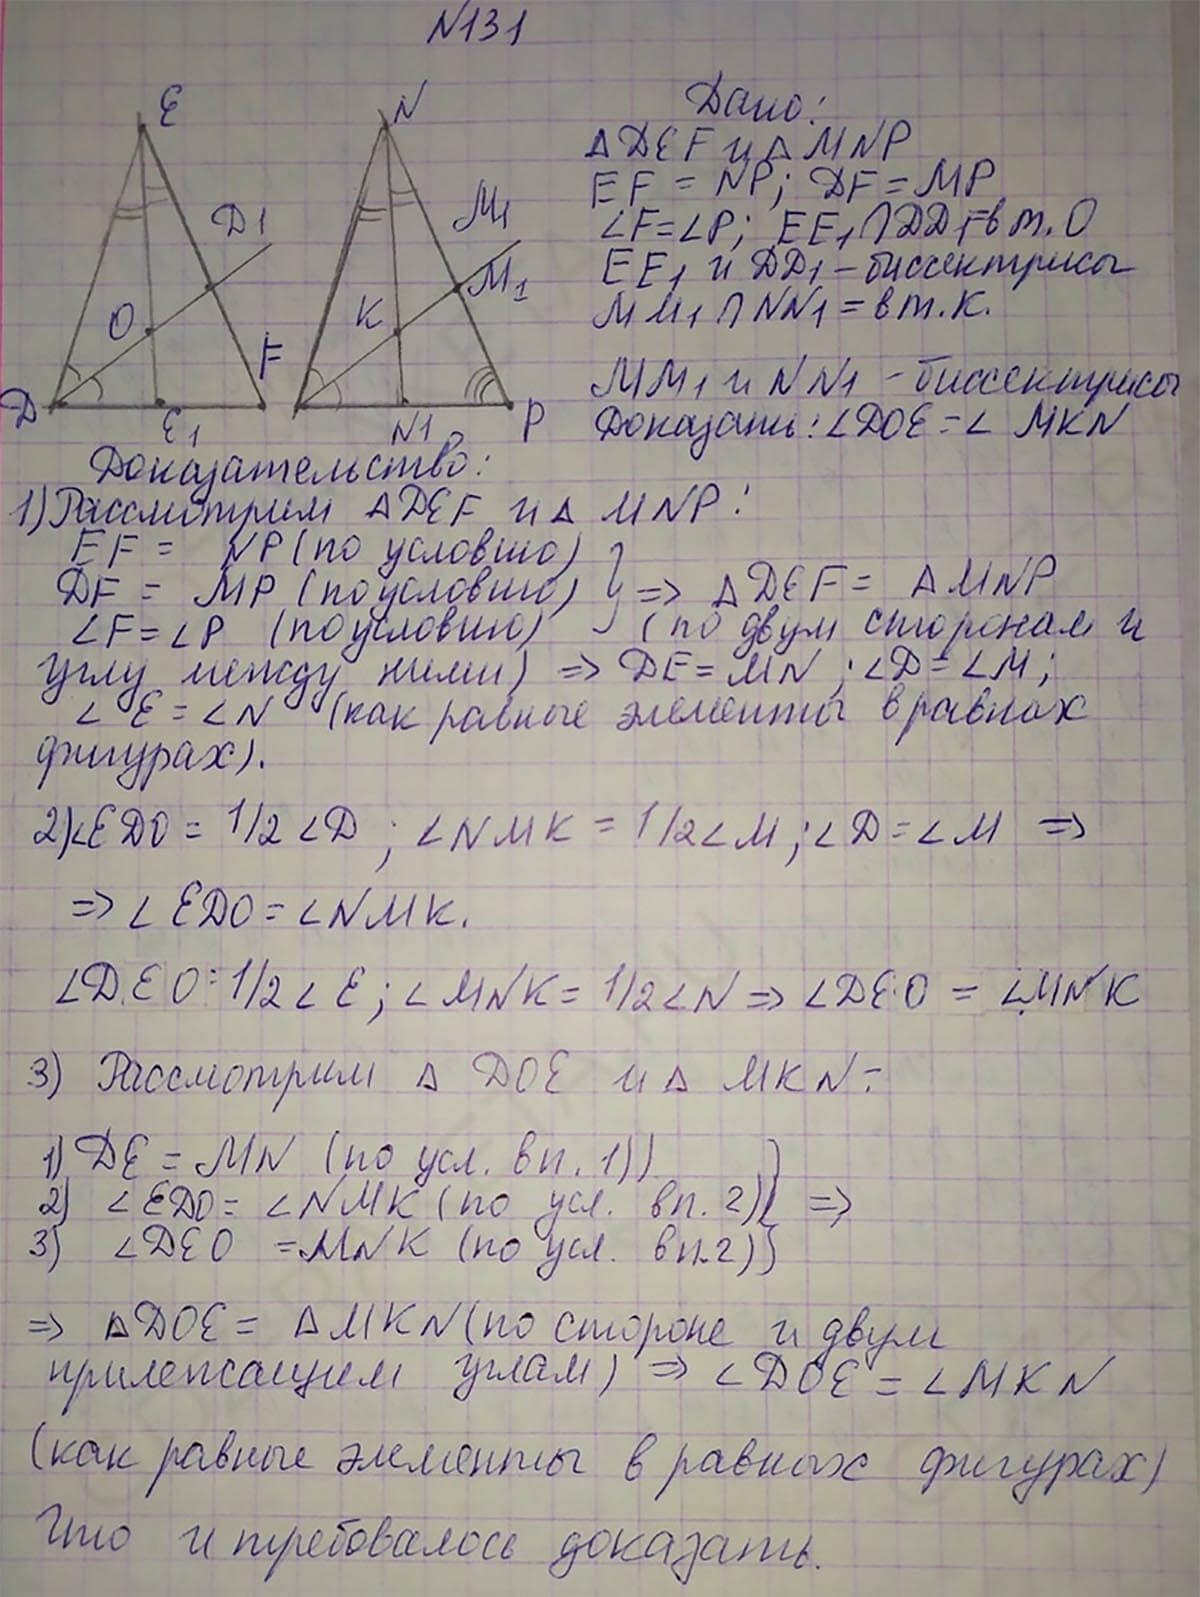 N131
E
N
D1
M1
M1
O
K
F
D
E1
N1
P
Дано:
△DEF и △ MNP
EF = NP; DF = MP
∠F=∠P; EE1∩DD1 в т. O
EE1 и DD1 – биссектрисы
MM1 ∩ NN1 = в т. К.
MM1 и NN1 – биссектрисы
Доказать: ∠DOE = ∠ MKN
Доказательство:
1) Рассмотрим △DEF и △ MNP:
EF = NP (по условию)
DF = MP (по условию) } => △DEF = △MNP
∠F=∠P (по условию) (по двум сторонам и
углу между ними) => DE = MN; ∠D=∠M;
∠E=∠N (как равные элементы в равных
фигурах).
2) ∠EDO = 1/2 ∠D; ∠NMK = 1/2∠M; ∠D=∠M =>
=> ∠EDO = ∠NMK.
∠DEO = 1/2∠E; ∠MNK = 1/2∠N => ∠DEO = ∠MNK
3) Рассмотрим △ DOE и △ MKN:
1) DE = MN (по усл. в п. 1))
2) ∠EDO = ∠NMK (по усл. в п. 2) } =>
3) ∠DEO = MNK (по усл. в п. 2)
=> △DOE = △MKN (по стороне и двум
прилежащим углам) => ∠DOE = ∠MKN
(как равные элементы в равных фигурах)
Что и требовалось доказать.